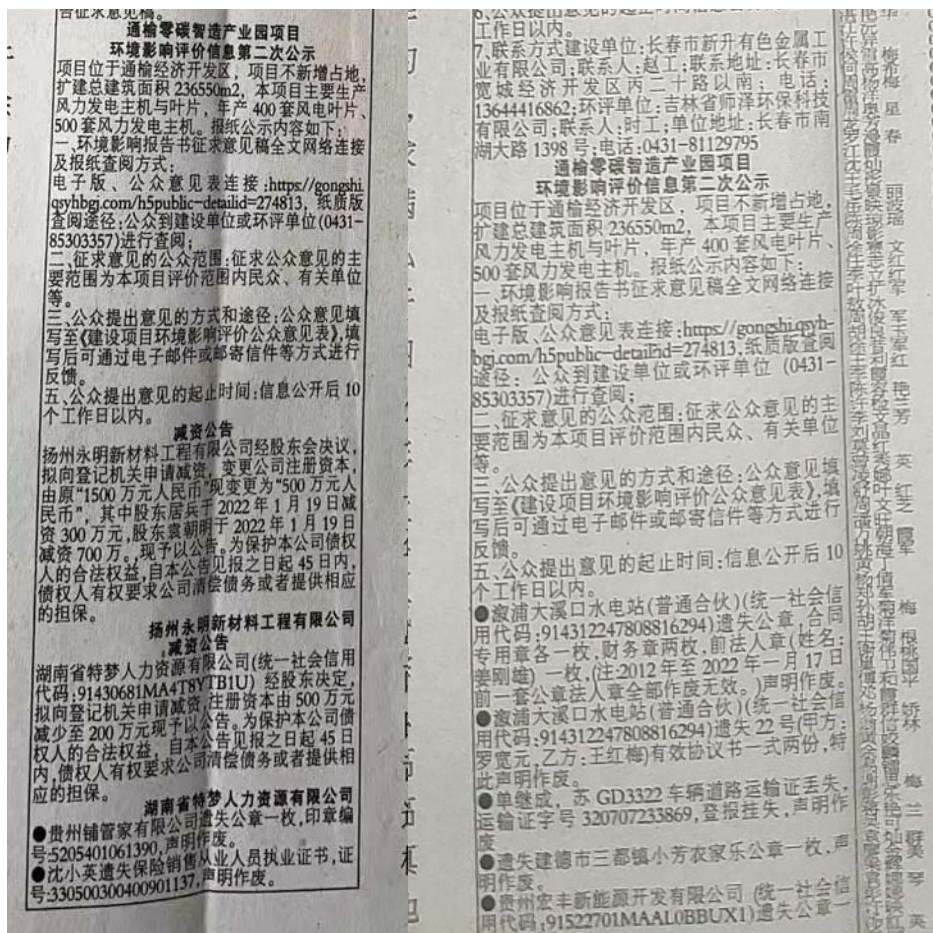 告征求意见稿。
通榆零碳智造产业园项目
环境影响评价信息第二次公示
项目位于通榆经济开发区，项目不新增占地，
扩建总建筑面积 236550m2，本项目主要生产
风力发电主机与叶片，年产 400 套风电叶片、
500 套风力发电主机。报纸公示内容如下：
一、环境影响报告书征求意见稿全文网络连接
及报纸查阅方式：
电子版、公众意见表连接:https://gongshi.
qsyhbgj.com/h5public-detailid=274813，纸质版
查阅途径：公众到建设单位或环评单位(0431-
85303357)进行查阅；
二、征求意见的公众范围：征求公众意见的主
要范围为本项目评价范围内民众、有关单位
等。
三、公众提出意见的方式和途径：公众意见填
写至《建设项目环境影响评价公众意见表》，填
写后可通过电子邮件或邮寄信件等方式进行
反馈。
五、公众提出意见的起止时间：信息公开后 10
个工作日以内。
减资公告
扬州永明新材料工程有限公司经股东会决议，
拟向登记机关申请减资，变更公司注册资本，
由原“1500 万元人民币”现变更为“500 万元人
民币”，其中股东居兵于 2022 年 1 月 19 日减
资 300 万元，股东袁朝明于 2022 年 1 月 19 日
减资 700 万。现予以公告。为保护本公司债权
人的合法权益，自本公告见报之日起 45 日内，
债权人有权要求公司清偿债务或者提供相应
的担保。
扬州永明新材料工程有限公司
减资公告
湖南省特梦人力资源有限公司(统一社会信用
代码:91430681MA4T8YTB1U) 经股东决定，
拟向登记机关申请减资，注册资本由 500 万元
减少至 200 万元现予以公告。为保护本公司债
权人的合法权益，自本公告见报之日起 45 日
内，债权人有权要求公司清偿债务或者提供相
应的担保。
湖南省特梦人力资源有限公司
●贵州铺管家有限公司遗失公章一枚，印章编
号:5205401061390，声明作废。
●沈小英遗失保险销售从业人员执业证书，证
号:330500300400901137，声明作废。
工作日以内。
7、联系方式建设单位：长春市新升有色金属工
业有限公司；联系人：赵工；联系地址：长春市
宽城经济开发区丙二十路以南；电话：
13644416862；环评单位：吉林省师泽环保科技
有限公司；联系人：时工；单位地址：长春市南
湖大路 1398 号；电话：0431-81129795
通榆零碳智造产业园项目
环境影响评价信息第二次公示
项目位于通榆经济开发区，项目不新增占地，
扩建总建筑面积 236550m2，本项目主要生产
风力发电主机与叶片，年产 400 套风电叶片、
500 套风力发电主机。报纸公示内容如下：
一、环境影响报告书征求意见稿全文网络连接
及报纸查阅方式：
电子版、公众意见表连接:https://gongshi.qsyh-
bgj.com/h5public-detailid=274813，纸质版查阅
途径：公众到建设单位或环评单位 (0431-
85303357)进行查阅；
二、征求意见的公众范围：征求公众意见的主
要范围为本项目评价范围内民众、有关单位
等。
三、公众提出意见的方式和途径：公众意见填
写至《建设项目环境影响评价公众意见表》，填
写后可通过电子邮件或邮寄信件等方式进行
反馈。
五、公众提出意见的起止时间：信息公开后 10
个工作日以内。
●溆浦大溪口水电站(普通合伙)(统一社会信
用代码:914312247808816294)遗失公章，合同
专用章各一枚，财务章两枚，前法人章(姓名：
姜刚雄)一枚，(注:2012 年至 2022 年一月 17 日
前一套公章法人章全部作废无效。)声明作废。
●溆浦大溪口水电站(普通合伙)(统一社会信
用代码:914312247808816294)遗失 22 号(甲方：
罗宽元，乙方：王红梅)有效协议书一式两份，特
此声明作废。
●单继成，苏 GD3322 车辆道路运输证丢失，
运输证字号 320707233869，登报挂失，声明作
废。
●遗失建德市三都镇小芳农家乐公章一枚，声
明作废。
●贵州宏丰新能源开发有限公司 (统一社会信
用代码:91522701MAAL0BBUX1)遗失公章一